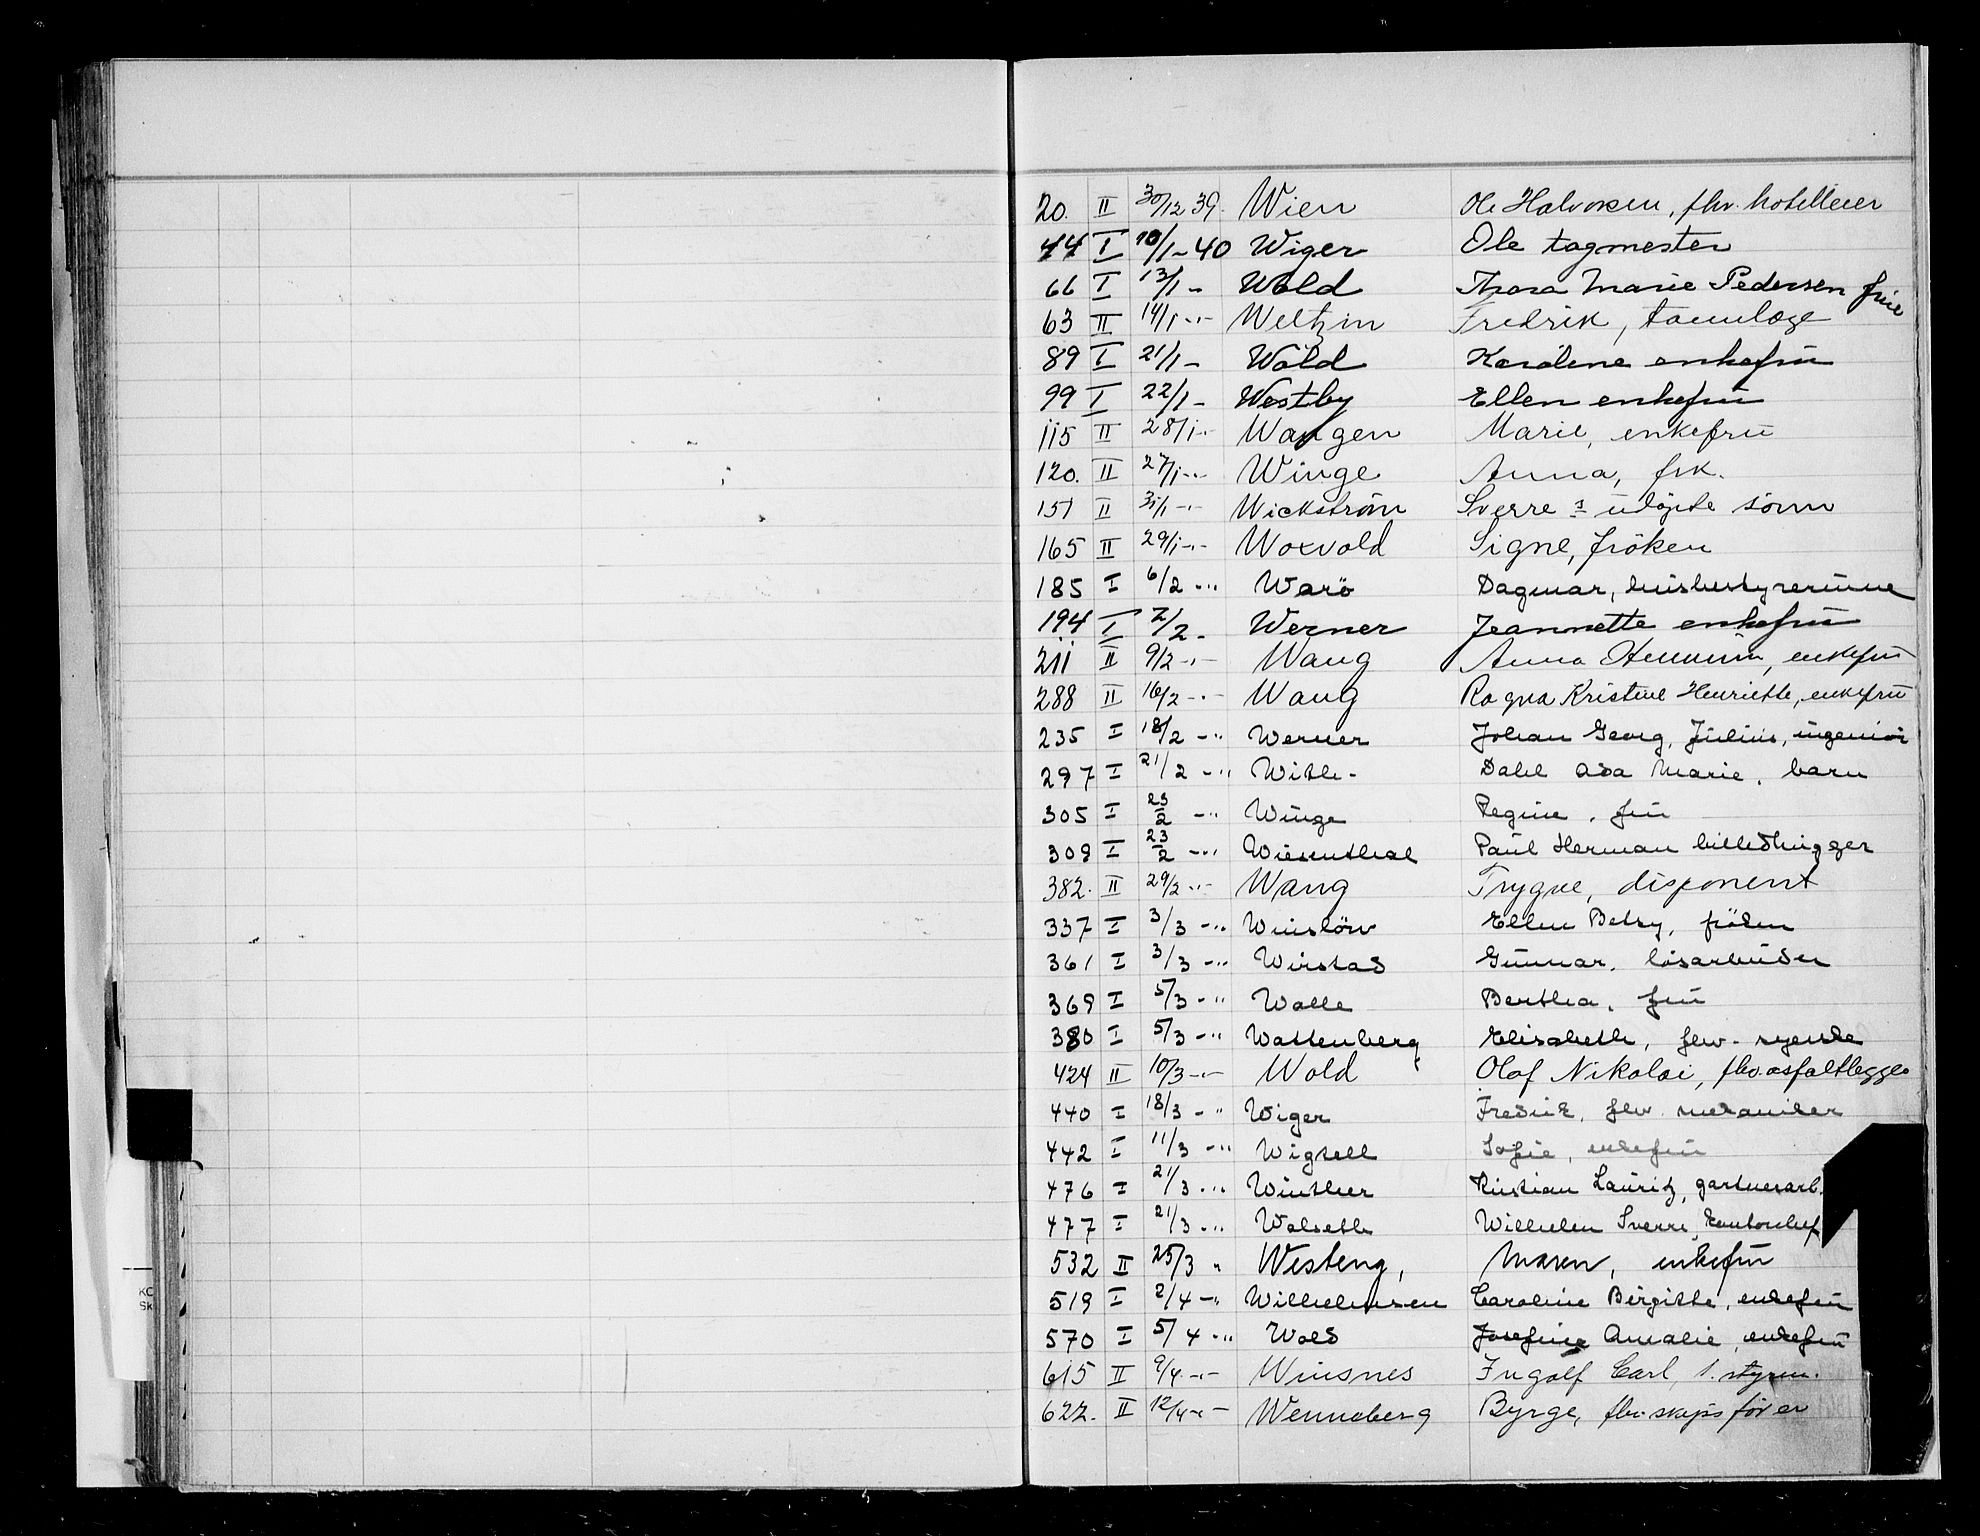 20. II 30/12 39. Wien Ole Halvorsen, fhv. hotelleier
44 I 10/1-40 Wiger Ole tagmester
66 I 13/1 - Wold Thora Marie Pedersen frue
63 II 14/1 -"- Weltzin Fredrik, tannlæge
89 I 21/1 - Wold Karoline enkefru
99 I 22/1 - Westby Ellen enkefru
115 II 28/1 -"- Wangen Marie, enkefru
120. II 27/1 -"- Winge Anna, frk.
151 II 31/1 -"- Wickstrøm Sverre s udøpte sønn
165 II 29/1 -"- Woxvold Signe, frøken
185 I 6/2 -"- Warö Dagmar, husbestyrerinne
194 I 7/2 - Werner Jeannette enkefru
211 II 9/2 -"- Wang Anna, enkefru
288 II 16/2 -"- Wang Ragna Kristine Henriette, enkefru
235 I 18/2 -" Werner Johan Georg, Julius, ingeniør
297 I 21/2 -" Dahl Ada Marie, barn
305 I 23/2 -" Winge Regine, fru
309 I 23/2 -" Wiesenthal Paul Herman billedhugger
382. II 29/2 -"- Wang Trygve, disponent
337 I 3/3 -" Winslöw Ellen Betsy, frøken
361 I 3/3 -" Wirstad Gunnar, løsarbeider
369 I 5/3 -" Walle Berthea, fru
380 I 5/3 -" Wattenberg Elisabeth, fhv. syerske
424 II 10/3 -"- Wold Olaf Nikolai, fhv. asfaltlegger
440 I 18/3 -" Wiger Fredrik, fhv. mekaniker
442 I 11/3 -" Wigsell Sofie, enkefru
476 I 21/3 -" Winther Kristian Lauritz, gartnerarb.
477 I 21/3 -" Walseth Wilhelm Sverre, kontorchef
532 II 25/3 " Westeng, Maren, enkefru
519 I 2/4 -" Wilhelmsen Caroline Birgitte, enkefru
570 I 5/4 -" Wold Josefine Amalie, enkefru
615 II 9/4 -"- Winsnes Ingolf Carl, 1. styrm.
622. II 12/4 -"- Wenneberg Byrge, fhv. skipsfører